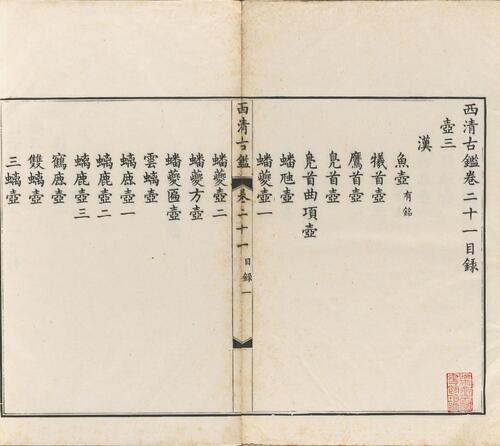 西清古鑑卷二十一目錄
壺三
漢
魚壺 有銘
犧首壺
鷹首壺
鳧首壺
鳧首曲項壺
蟠虺壺
蟠夔壺一
西清古鑑 卷二十一 目錄 一
蟠夔壺二
蟠夔方壺
蟠夔匾壺
雲螭壺
螭鹿壺一
螭鹿壺二
螭鹿壺三
鶴鹿壺
雙螭壺
三螭壺